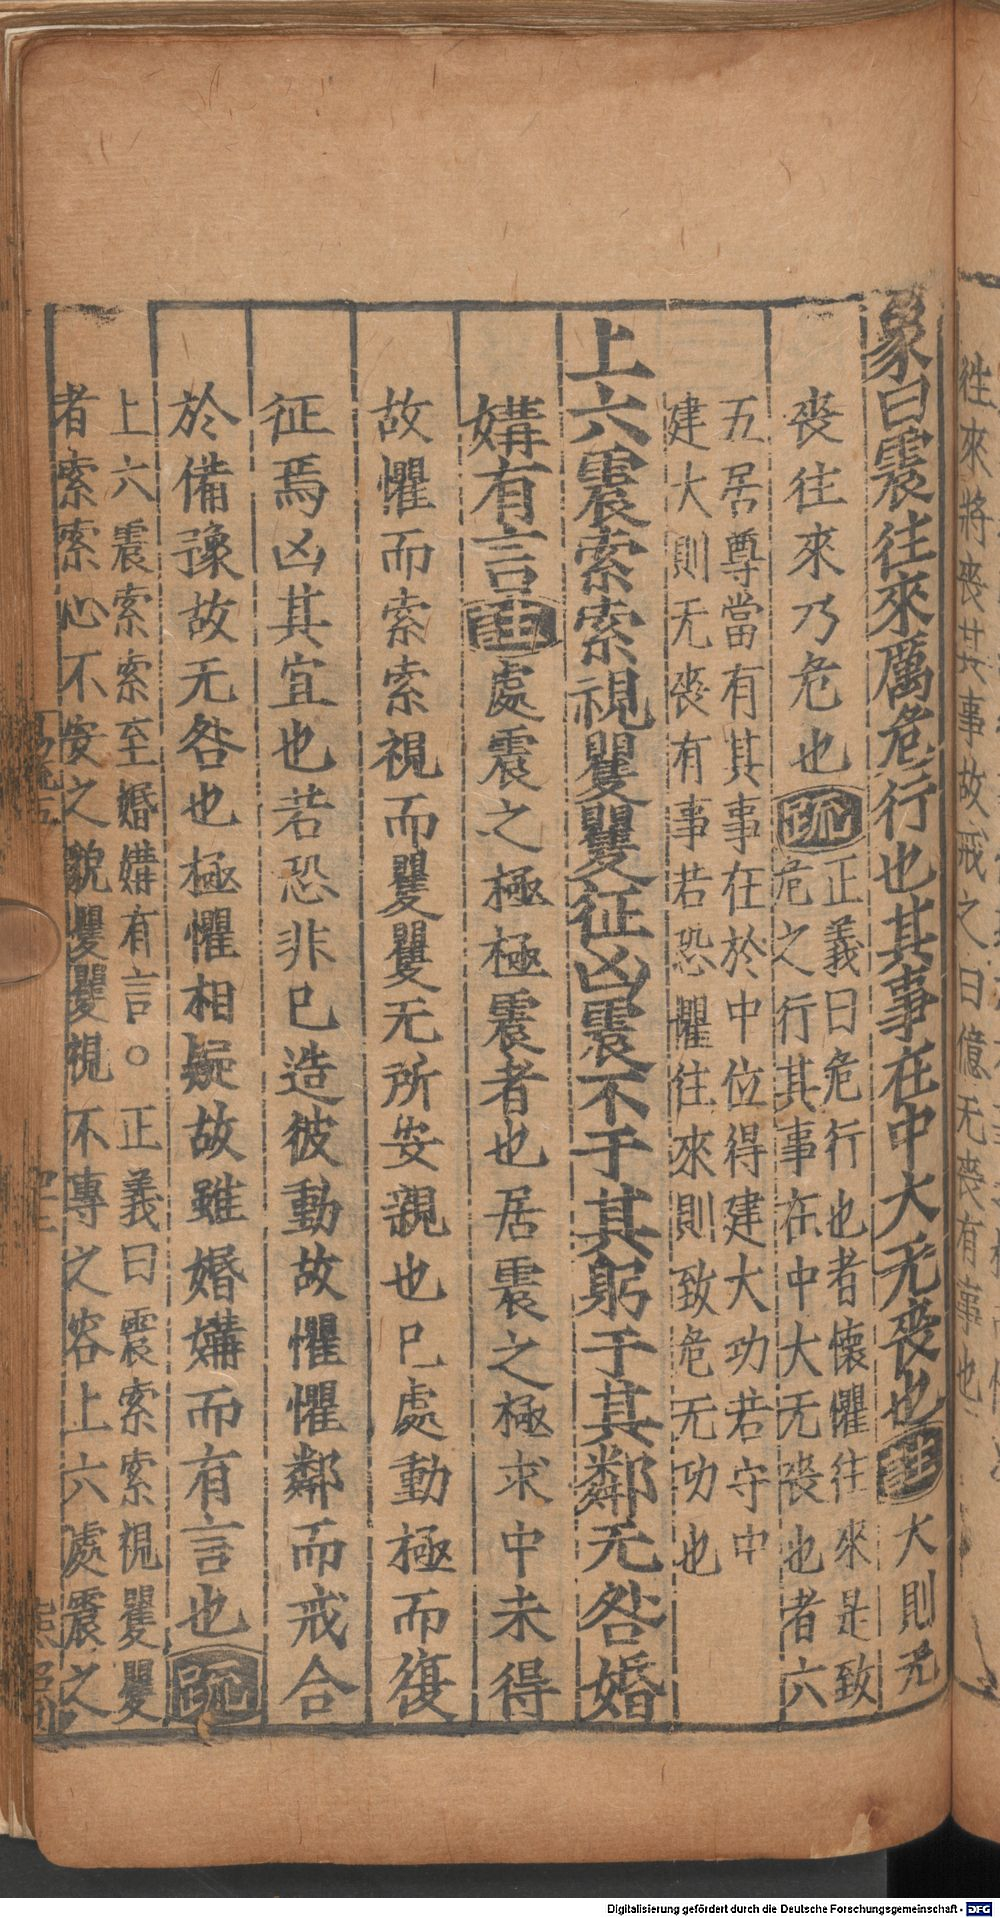 象曰震往來厲危行也其事在中大无喪也註大則无
喪往來乃危也疏正義曰危行也者懷懼往來是致
危之行其事在中大无喪也者六
五居尊當有其事在於中位得建大功若守中
建大則无喪有事若恐懼往來則致危无功也
上六震索索視矍矍征凶震不于其躬于其鄰无咎婚
媾有言註處震之極極震者也居震之極求中未得
故懼而索索視而矍矍无所安親也已處動極而復
征焉凶其宜也若恐非已造彼動故懼懼鄰而戒合
於備豫故无咎也極懼相疑故雖婚媾而有言也疏
上六震索索至婚媾有言○正義曰震索索視矍矍
者索索心不安之貌矍矍視不專之容上六處震之
往來將喪其事故戒之曰億无喪有事也
Digitalisierung gefördert durch die Deutsche Forschungsgemeinschaft - DFG